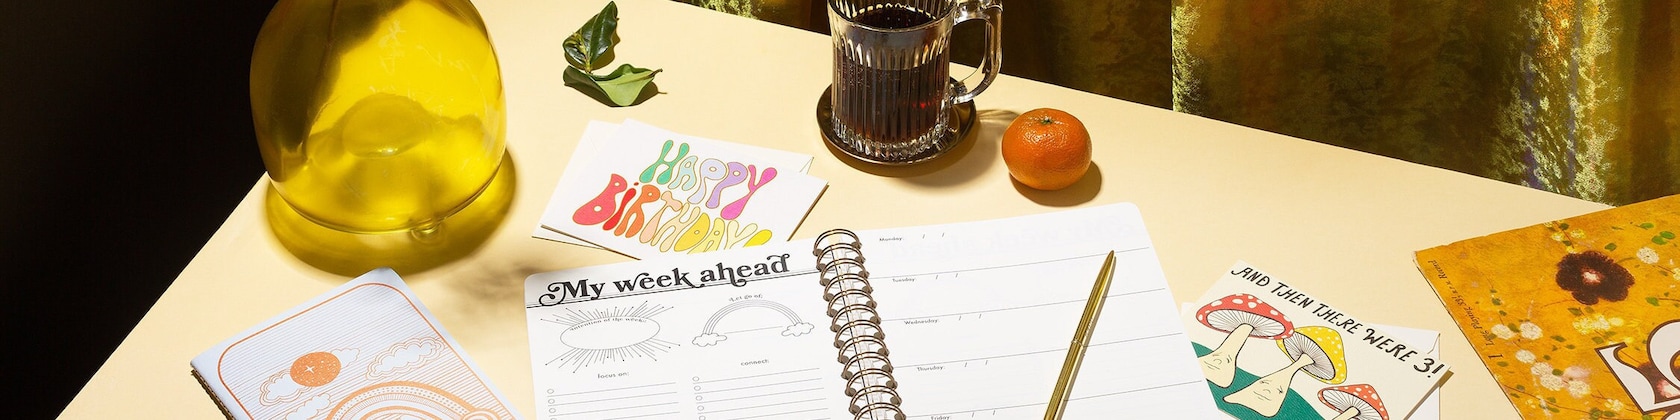 HAPPY
BiRTHDAY!
My week ahead
Intention of the week:
Let go of:
focus on:
connect:
Monday: / /
Tuesday: / /
Wednesday: / /
Thursday: / /
Friday: / /
AND THEN THERE WERE 3!